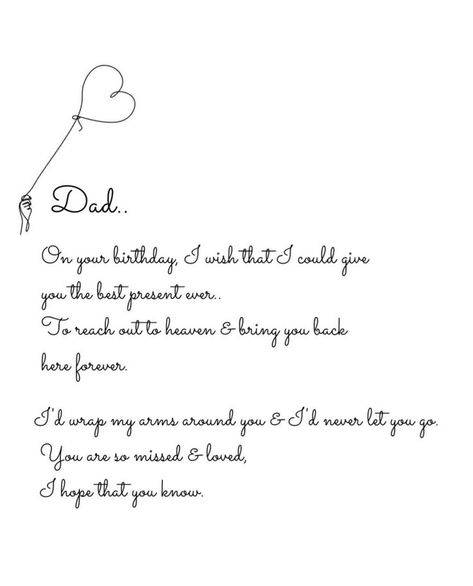 Dad..
On your birthday, I wish that I could give
you the best present ever..
To reach out to heaven & bring you back
here forever.
I'd wrap my arms around you & I'd never let you go.
You are so missed & loved,
I hope that you know.